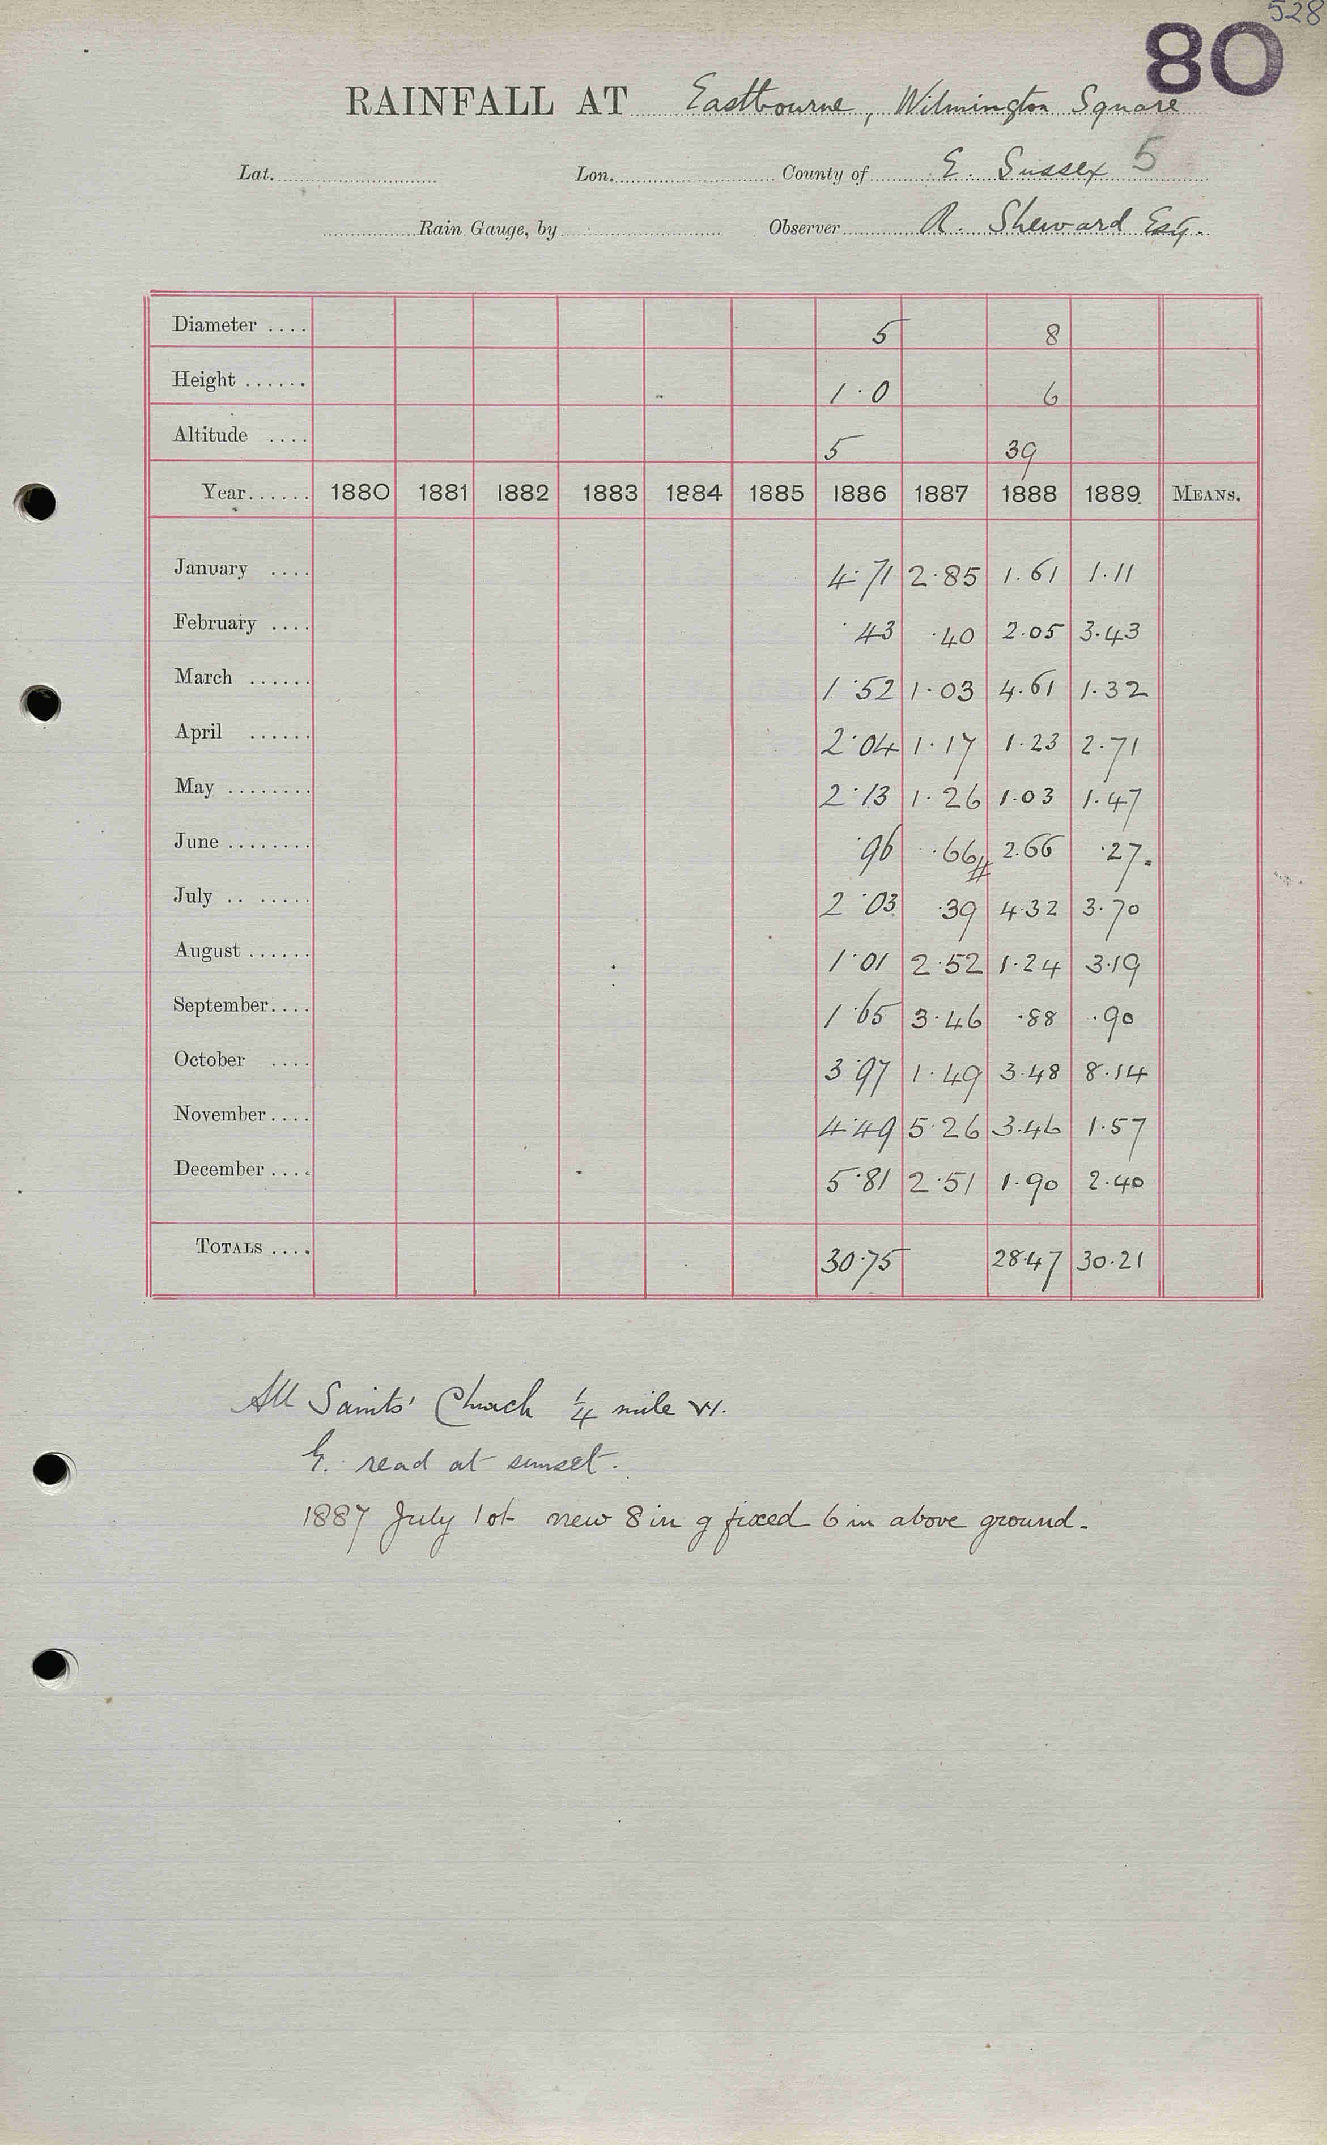 528
80
RAINFALL AT Eastbourne, Wilmington Square
Lat. Lon. County of E. Sussex 5
Rain Gauge, by Observer R. Sheward Esq.
Diameter .... 5 8
Height ...... 1·0 6
Altitude .... 5 39
Year...... 1880 1881 1882 1883 1884 1885 1886 1887 1888 1889 MEANS.
January .... 4·71 2·85 1·61 1·11
February .... ·43 ·40 2·05 3·43
March ...... 1·52 1·03 4·61 1·32
April ...... 2·04 1·17 1·23 2·71
May ........ 2·13 1·26 1·03 1·47
June ........ ·96 ·66 2·66 ·27
July .. ..... 2·03 ·39 4·32 3·70
August ...... 1·01 2·52 1·24 3·19
September.... 1·65 3·46 ·88 ·90
October .... 3·97 1·49 3·48 8·14
November.... 4·49 5·26 3·46 1·57
December .... 5·81 2·51 1·90 2·40
TOTALS .... 30·75 28·47 30·21
All Saints' Church 1/4 mile W.
G. read at sunset.
1887 July 1st new 8 in g fixed 6 in above ground.